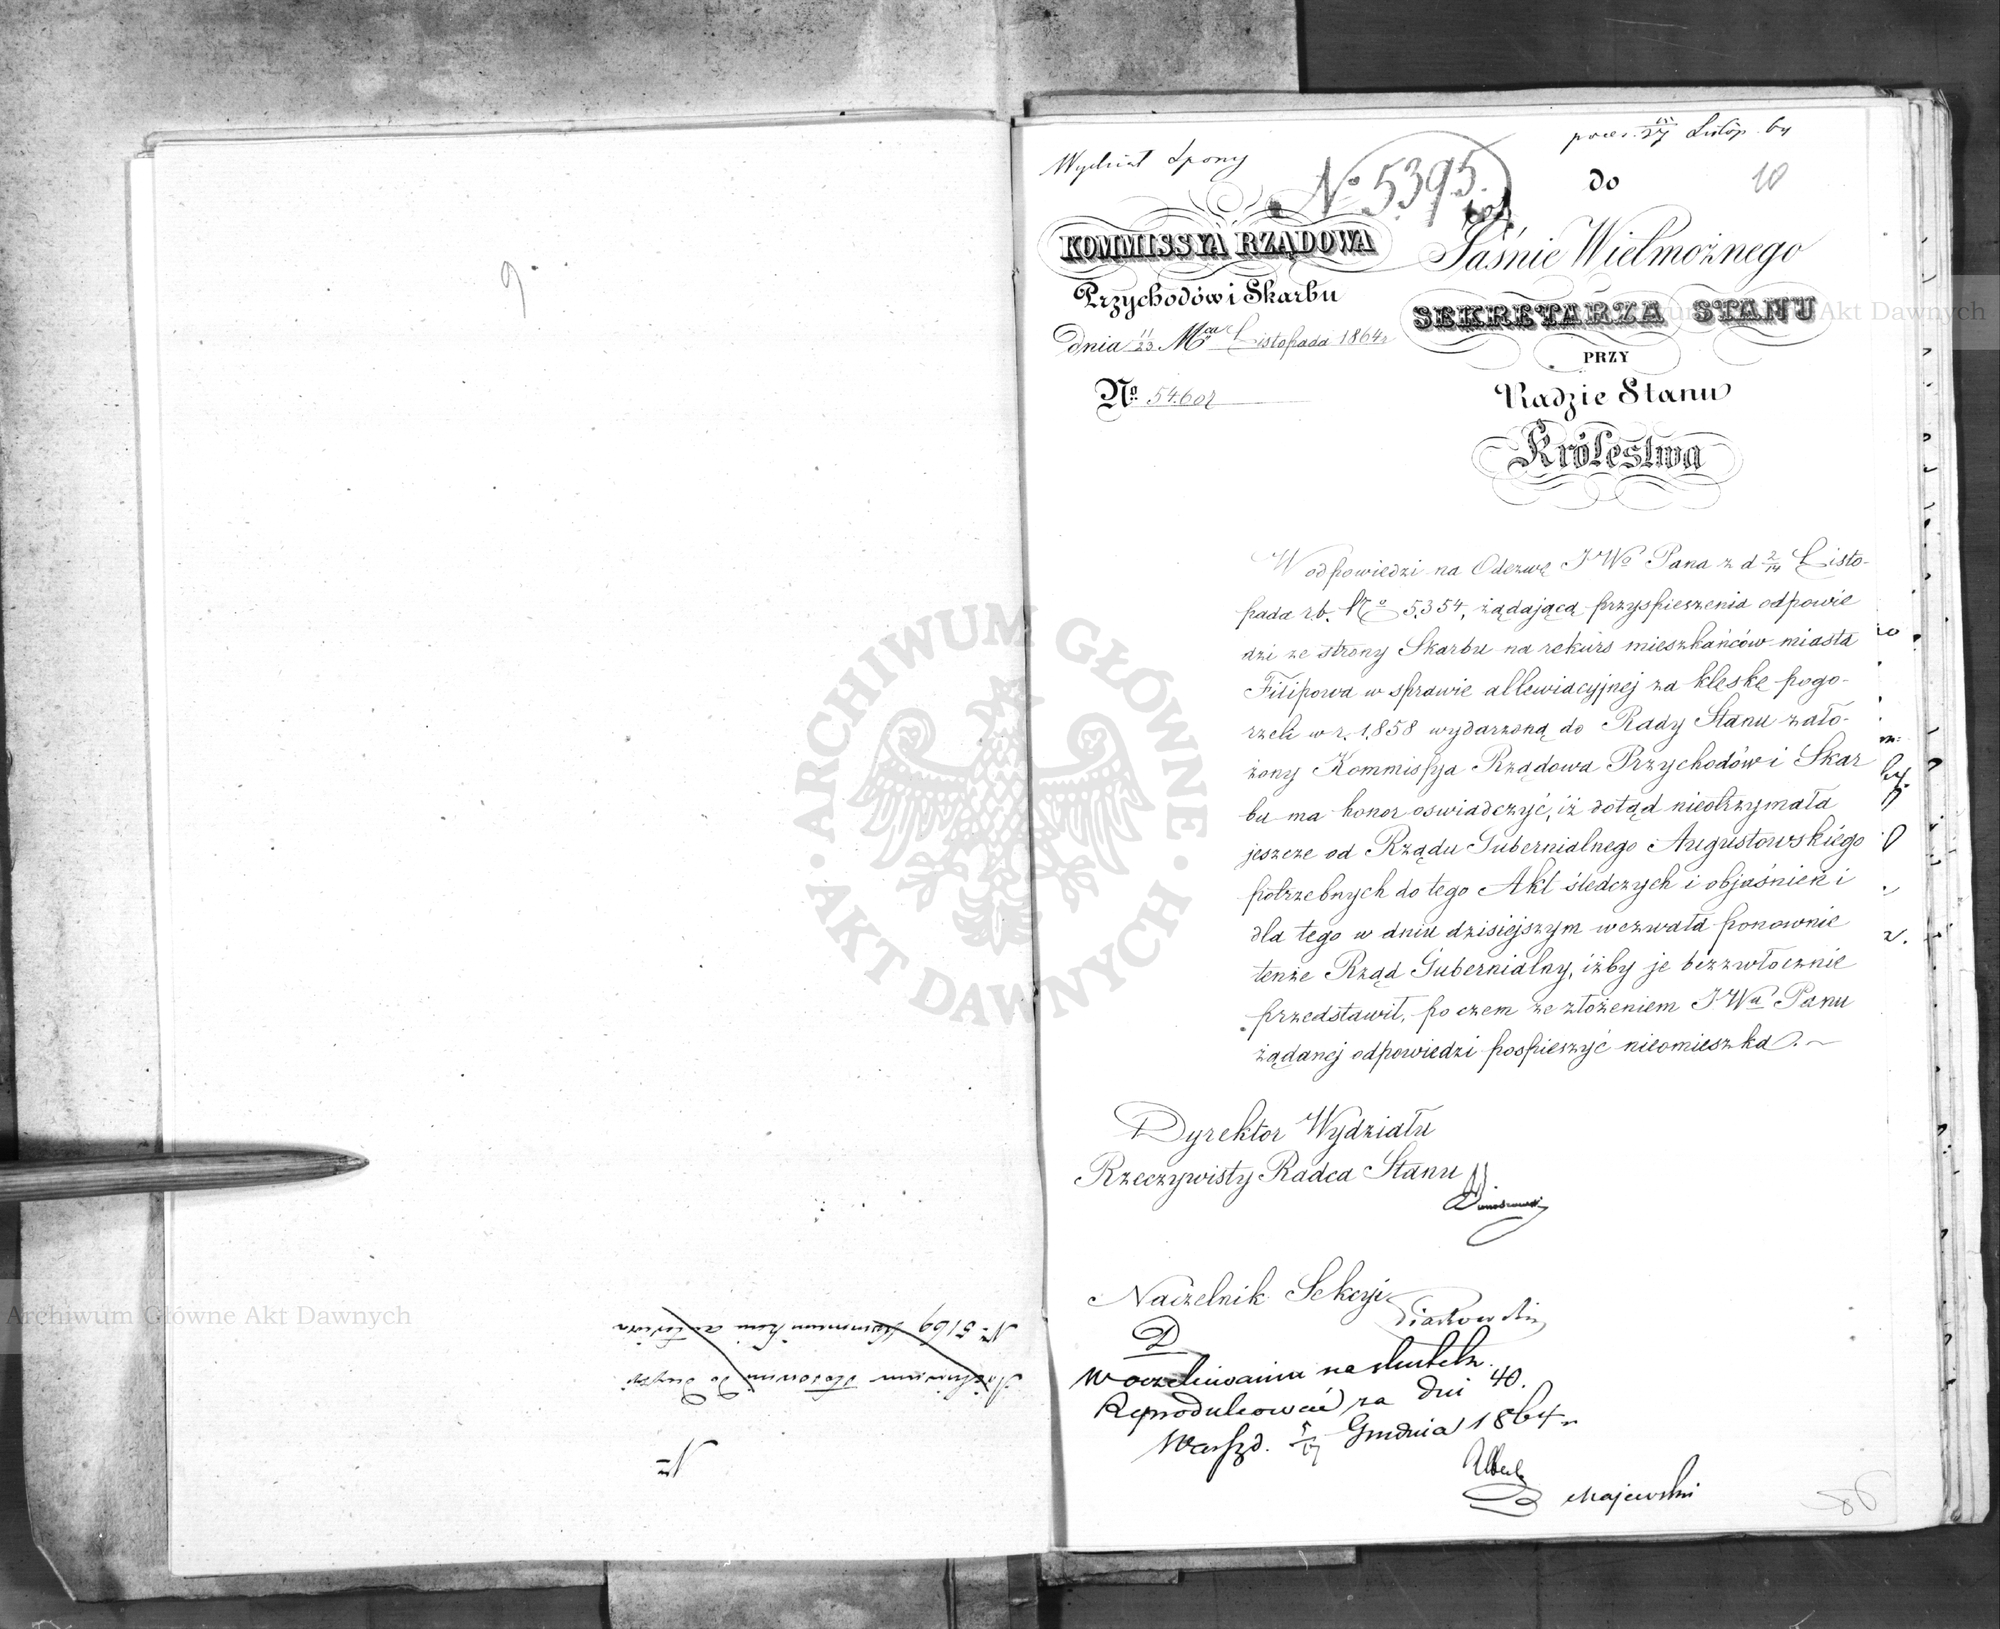 9
Nº
Nº 5169
Wydział Spory
Nº 5395.
Listop. 64
do
10
KOMMISSYA RZĄDOWA
Przychodów i Skarbu
dnia 11/23 Mca Listopada 1864 r
Nº 54.602
Jaśnie Wielmożnego
SEKRETARZA STANU
PRZY
Radzie Stanu
Królestwa
W odpowiedzi na Odezwę JWo Pana z d 2/14 Listo-
pada r.b. No 5.354, żądającą przyspieszenia odpowie
dzi ze strony Skarbu na rekurs mieszkańców miasta
Filipowa w sprawie allewiacyjnej za klęskę pogo-
rzeli w r. 1858 wydarzoną do Rady Stanu zało-
żony Kommissya Rządowa Przychodów i Skar
bu ma honor oswiadczyć, iż dotąd nieotrzymała
jeszcze od Rządu Gubernialnego Augustowskiego
potrzebnych do tego Akt śledczych i objaśnień i
dla tego w dniu dzisiejszym wezwała ponownie
tenże Rząd Gubernialny, iżby je bezzwłocznie
przedstawił, poczem ze złożeniem JWu Panu
żądanej odpowiedzi pospieszyć nieomieszka. —
Dyrektor Wydziału
Rzeczywisty Radca Stanu
Naczelnik Sekcyi
Piotrowski
D
W oczekiwaniu na skutek.
Reprodukować za dni 40.
Warszd. 5/17 Grudnia 1864 r
Majewski
86
ARCHIWUM GŁÓWNE AKT DAWNYCH
Archiwum Główne Akt Dawnych